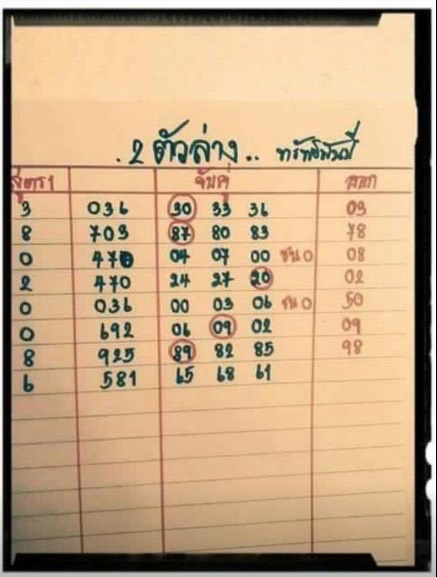 . 2 ตัวล่าง.. ทรัพย์พันปี
สูตร 1 จับคู่ ออก
3 036 30 33 36 03
8 703 87 80 83 78
0 470 04 07 00 ชน 0 08
2 470 24 27 20 02
0 036 00 03 06 ชน 0 50
0 692 06 09 02 09
8 925 89 82 85 98
6 581 65 68 61